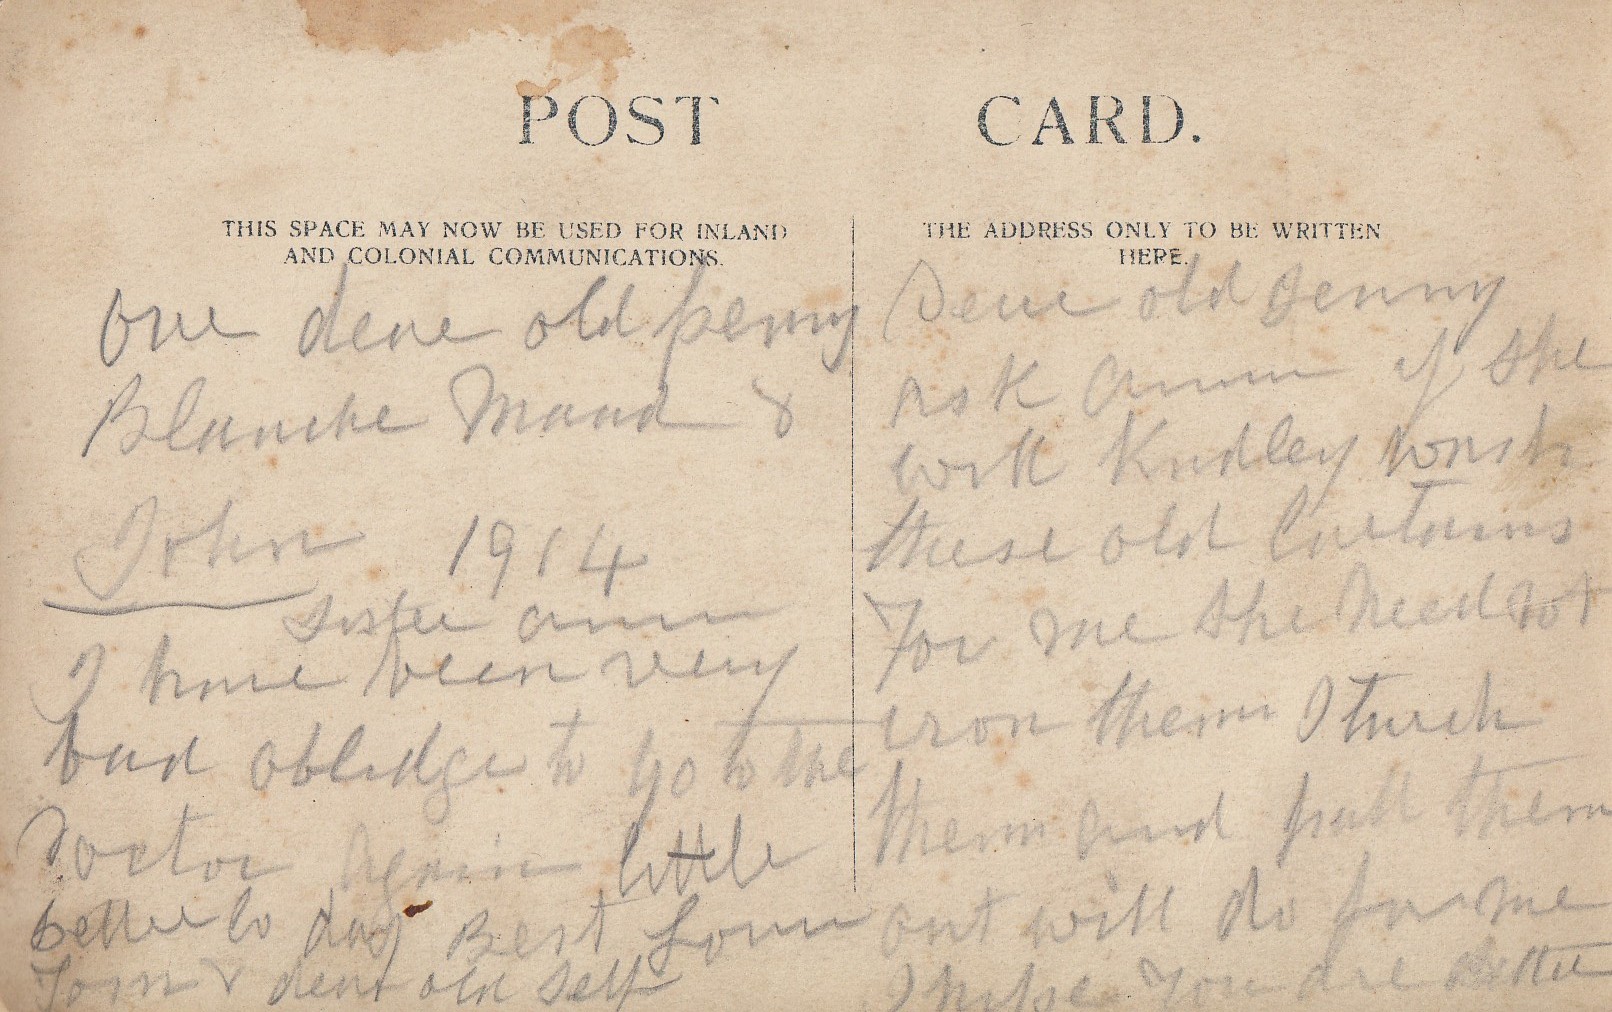 POST CARD.
THIS SPACE MAY NOW BE USED FOR INLAND
AND COLONIAL COMMUNICATIONS.
THE ADDRESS ONLY TO BE WRITTEN
HERE.
our deare old penny
Blanche Maud &
John 1914
sister
I have been very
bad oblidge to go to the
Doctor again little
better to day Best
Tom & dear old self
Deare old Jenny
ask if she
will wash
these old Curtains
For me she need not
iron them I
them and pull them
out will do for me
I hope You are Better